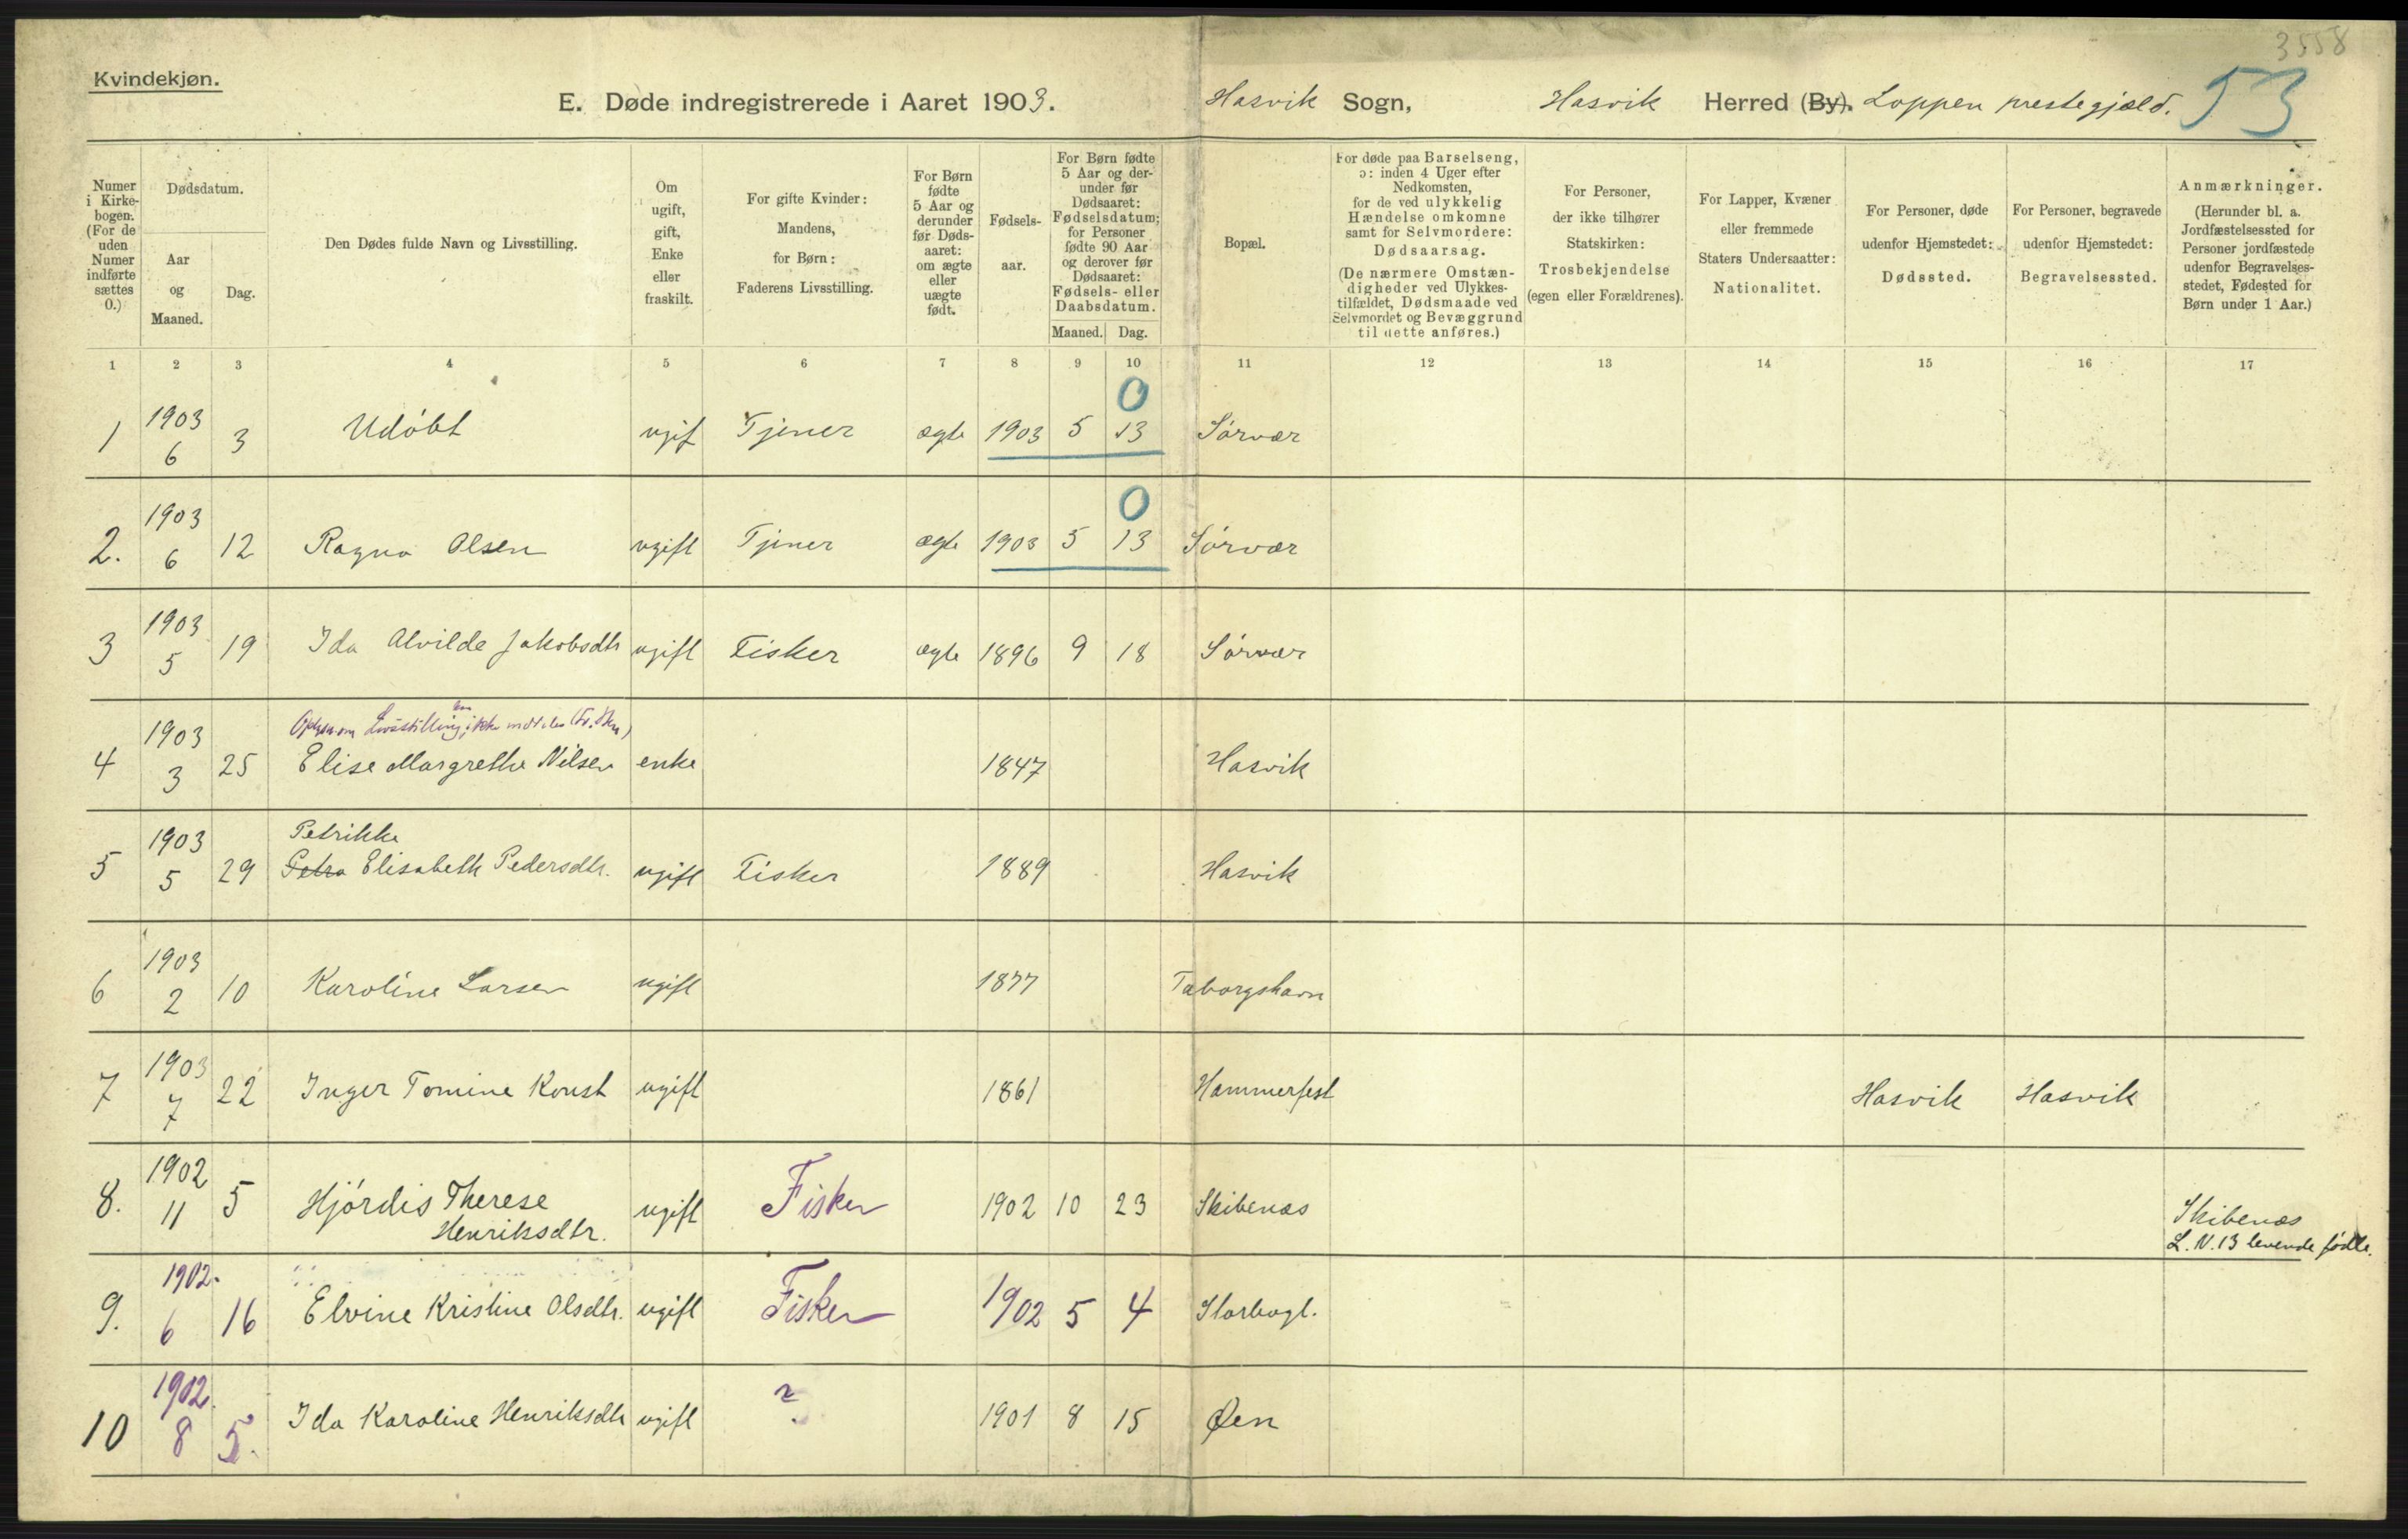 3558
Kvindekjøn.
E. Døde indregistrerede i Aaret 1903. Hasvik Sogn, Hasvik Herred (By). Loppen prestegjæld. 53
Numer i Kirkebogen. (For de uden Numer indførte sættes 0.)
Dødsdatum.
Aar og Maaned.
Dag.
Den Dødes fulde Navn og Livsstilling.
Om ugift, gift, Enke eller fraskilt.
For gifte Kvinder: Mandens, for Børn: Faderens Livsstilling.
For Børn fødte 5 Aar og derunder før Dødsaaret: om ægte eller uægte født.
Fødselsaar.
For Børn fødte 5 Aar og derunder før Dødsaaret: Fødselsdatum; for Personer fødte 90 Aar og derover før Dødsaaret: Fødsels- eller Daabsdatum.
Maaned. Dag.
Bopæl.
For døde paa Barselseng, ɔ: inden 4 Uger efter Nedkomsten, for de ved ulykkelig Hændelse omkomne samt for Selvmordere: Dødsaarsag. (De nærmere Omstændigheder ved Ulykkestilfældet, Dødsmaade ved Selvmordet og Bevæggrund til dette anføres.)
For Personer, der ikke tilhører Statskirken: Trosbekjendelse (egen eller Forældrenes).
For Lapper, Kvæner eller fremmede Staters Undersaatter: Nationalitet.
For Personer, døde udenfor Hjemstedet: Dødssted.
For Personer, begravede udenfor Hjemstedet: Begravelsessted.
Anmærkninger. (Herunder bl. a. Jordfæstelsessted for Personer jordfæstede udenfor Begravelsesstedet, Fødested for Børn under 1 Aar.)
1 2 3 4 5 6 7 8 9 10 11 12 13 14 15 16 17
0
1 1903 6 3 Udøbt ugif Tjener ægte 1903 5 13 Sørvær
0
2. 1903 6 12 Ragna Olsen ugift Tjener ægte 1903 5 13 Sørvær
3 1903 5 19 Ida Alvilde Jakobsdtr ugift Fisker ægte 1896 9 18 Sørvær
Livsstilling ikke
4 1903 3 25 Elise Margrethe Nilsen enke 1847 Hasvik
Petrikke
5 1903 5 29 Petra Elisabeth Pedersdtr. ugift Fisker 1889 Hasvik
6 1903 2 10 Karoline Larsen ugift 1877 Taborgshavn
7 1903 7 22 Inger Tomine Konst ugift 1861 Hammerfest Hasvik Hasvik
8. 1902 11 5 Hjørdis Therese Henriksdtr. ugift Fisker 1902 10 23 Skibenæs Skibenæs
L. N. 13 levende fødte.
9. 1902. 6 16 Elvine Kristine Olsdtr. ugift Fisker 1902 5 4
10 1902. 8 5. Ida Karoline Henriksdtr ugift ? 1901 8 15 Øen